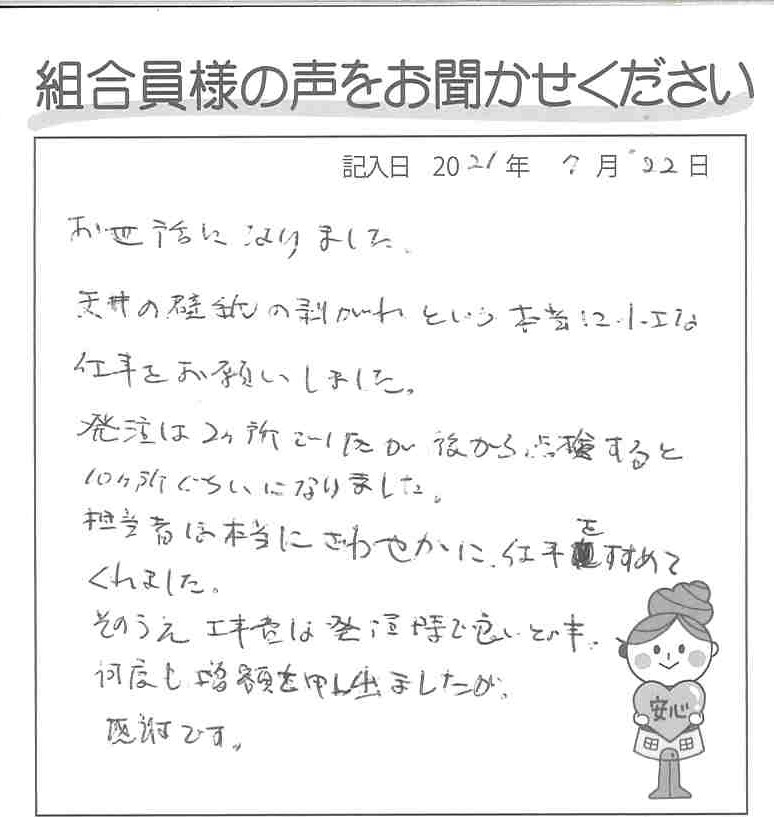 組合員様の声をお聞かせください
記入日 2021年 7月 22日
お世話になりました.
天井の壁紙の剥がれという本当に小さな
仕事をお願いしました。
発注は2ヶ所でしたが 後から点検すると
10ヶ所ぐらいになりました。
担当者は本当にさわやかに、仕事をすすめて
くれました。
そのうえ 工事費は発注時で良いとの事、
何度も増額を申し出ましたが、
感謝です。
安心